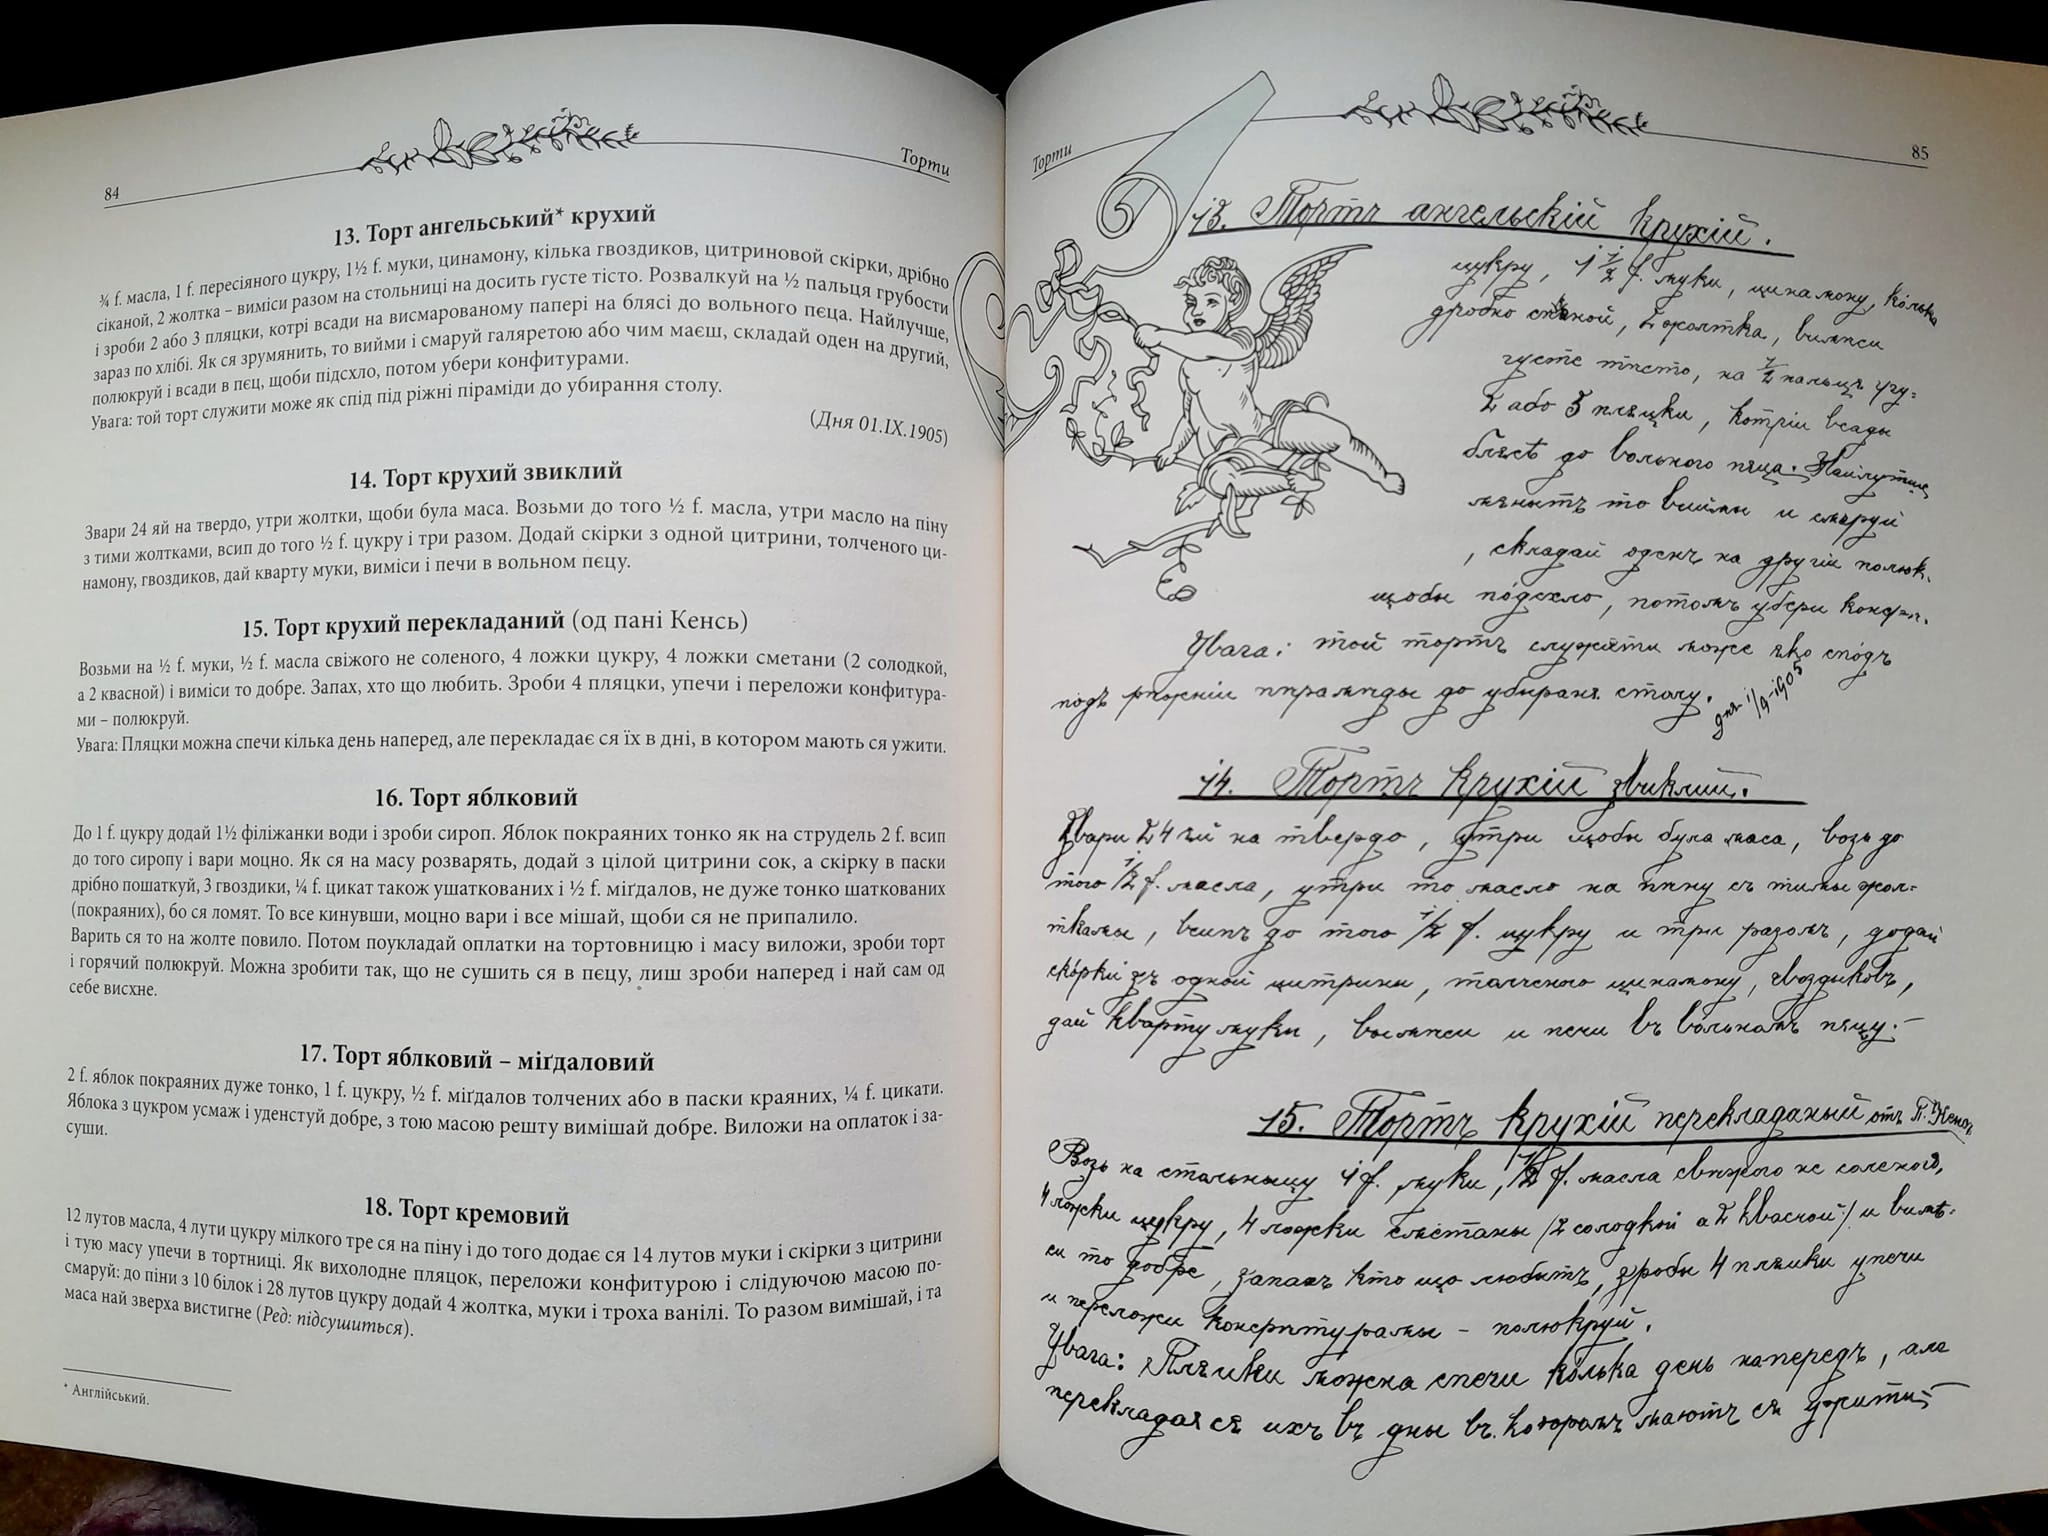 84
Торти
13. Торт ангельський* крухий
¾ f. масла, 1 f. пересіяного цукру, 1½ f. муки, цинамону, кілька гвоздиків, цитриновой скірки, дрібно
сіканой, 2 жолтка – виміси разом на стольниці на досить густе тісто. Розвалкуй на ½ пальця грубости
і зроби 2 або 3 пляцки, котрі всади на висмарованому папері на блясі до вольного пєца. Найлучше,
зараз по хлібі. Як ся зрумянить, то вийми і смаруй галяретою або чим маєш, складай оден на другий,
полюкруй і всади в пєц, щоби підсхло, потом убери конфитурами.
Увага: той торт служити може як спід під ріжні піраміди до убирання столу.
(Дня 01.IX.1905)
14. Торт крухий звиклий
Звари 24 яй на твердо, утри жолтки, щоби була маса. Возьми до того ½ f. масла, утри масло на піну
з тими жолтками, всип до того ½ f. цукру і три разом. Додай скірки з одной цитрини, толченого ци-
намону, гвоздиков, дай кварту муки, виміси і печи в вольном пєцу.
15. Торт крухий перекладаний (од пані Кенсь)
Возьми на ½ f. муки, ½ f. масла свіжого не соленого, 4 ложки цукру, 4 ложки сметани (2 солодкой,
а 2 квасной) і виміси то добре. Запах, хто що любить. Зроби 4 пляцки, упечи і переложи конфитура-
ми – полюкруй.
Увага: Пляцки можна спечи кілька день наперед, але перекладає ся їх в дні, в котором мають ся ужити.
16. Торт яблковий
До 1 f. цукру додай 1½ філіжанки води і зроби сироп. Яблок покраяних тонко як на струдель 2 f. всип
до того сиропу і вари моцно. Як ся на масу розварять, додай з цілой цитрини сок, а скірку в паски
дрібно пошаткуй, 3 гвоздики, ¼ f. цикат також ушаткованих і ½ f. міґдалов, не дуже тонко шаткованих
(покраяних), бо ся ломят. То все кинувши, моцно вари і все мішай, щоби ся не припалило.
Варить ся то на жолте повило. Потом поукладай оплатки на тортовницю і масу виложи, зроби торт
і горячий полюкруй. Можна зробити так, що не сушить ся в пєцу, лиш зроби наперед і най сам од
себе висхне.
17. Торт яблковий – міґдаловий
2 f. яблок покраяних дуже тонко, 1 f. цукру, ½ f. міґдалов толчених або в паски краяних, ¼ f. цикати.
Яблока з цукром усмаж і уденстуй добре, з тою масою решту вимішай добре. Виложи на оплаток і за-
суши.
18. Торт кремовий
12 лутов масла, 4 лути цукру мілкого тре ся на піну і до того додає ся 14 лутов муки і скірки з цитрини
і тую масу упечи в тортниці. Як вихолодне пляцок, переложи конфитурою і слідуючою масою по-
смаруй: до піни з 10 білок і 28 лутов цукру додай 4 жолтка, муки і троха ванілі. То разом вимішай, і та
маса най зверха вистигне (Ред: підсушиться).
* Англійський.
Торти
85
13. Тортъ ангельскій крухій.
цукру, 1 ½ f. муки, цинамону, кôлька
дробно сѣканой, 2 жолтка, вымѣси
густе тѣсто, на ½ пальцѧ гру-
2 або 3 пляцки, котріи всады
блясѣ до вольного пяца. Найлутше
мянитъ то выймы и смаруй
, складай оденъ на другій полюк-
щобы пôдсхло, потомъ убери конфи-
Увага: той тортъ служити може яко спôдъ
подъ рôжніи пирамиды до убираня столу.
дня 1/9-1905
14. Тортъ крухій звиклий.
Звари 24 яй на твердо, утри щобы була маса, возь до
того ½ f. масла, утри то масло на пѣну съ тимы жол-
ткамы, всипъ до того ½ f. цукру и три разомъ, додай
скôркі зъ одной цитрины, толченого цинамону, гвоздиковъ,
дай кварту муки, вымѣси и печи въ вольномъ пяцу.-
15. Тортъ крухій перекладаный отъ П. Кенсь
Возь на стольныцу 1 f. муки, ½ f. масла свѣжого не соленого,
4 ложки цукру, 4 ложки сметаны /2 солодкой а 2 квасной/ и вымѣ-
си то добре, запахъ кто що любитъ, зробы 4 пляцки упечи
и переложи конфитурамы - полюкруй.
Увага: Пляцки можна спечи кôлька день напередъ, але
перекладаяся ихъ въ дны въ которомъ маютъ ся ужити